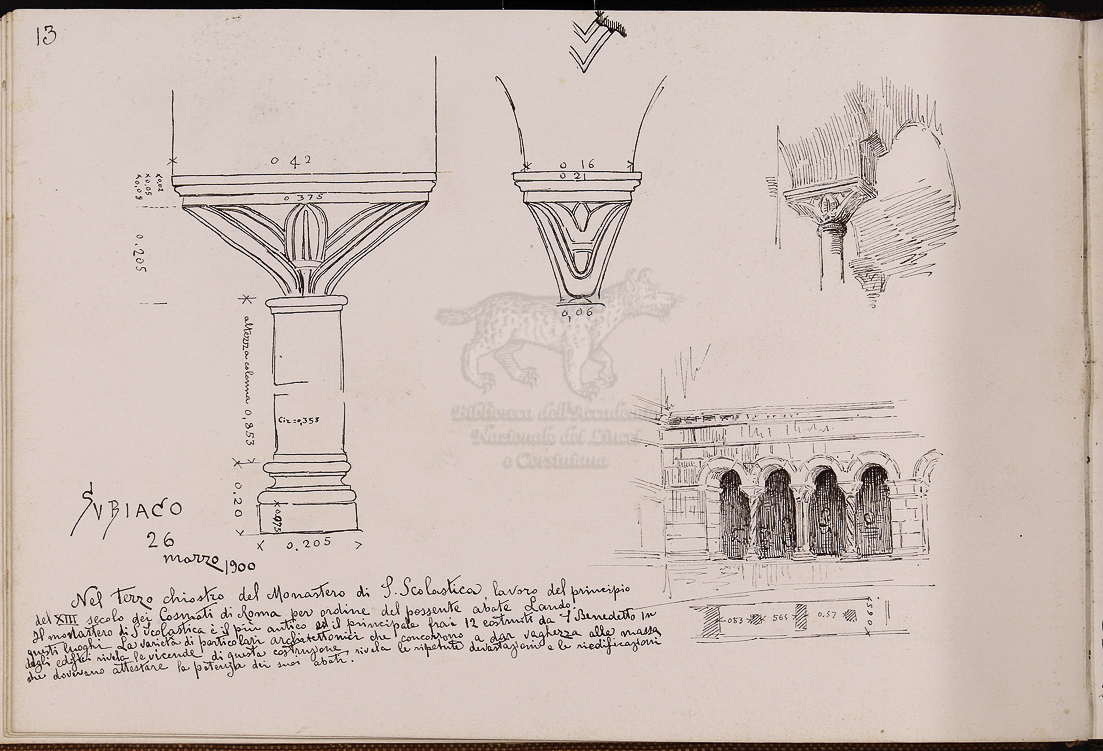 13
0 42
0 375
x 0,02
x 0,05
x 0,09
0.205
altezza colonna 0,853
Cir=0,353
0.20
0,075
0.205
0 16
0 21
0,06
Biblioteca dell'Accademia
Nazionale dei Lincei
e Corsiniana
SVBIACO
26
marzo 1900
Nel terzo chiostro del Monastero di S. Scolastica, lavoro del principio
del XIII secolo dei Cosmati di Roma per ordine del possente abate Lando.
Il monastero di S. Scolastica è il più antico ed il principale frai 12 costruiti da S Benedetto in
questi luoghi. La varietà di particolari architettonici che concorrono a dar vaghezza alla massa
degli edifici rivela le vicende di questa costruzione, rivela le ripetute devastazioni e le riedificazioni
che dovevano attestare la potenza dei suoi abati.
053
565
0.57